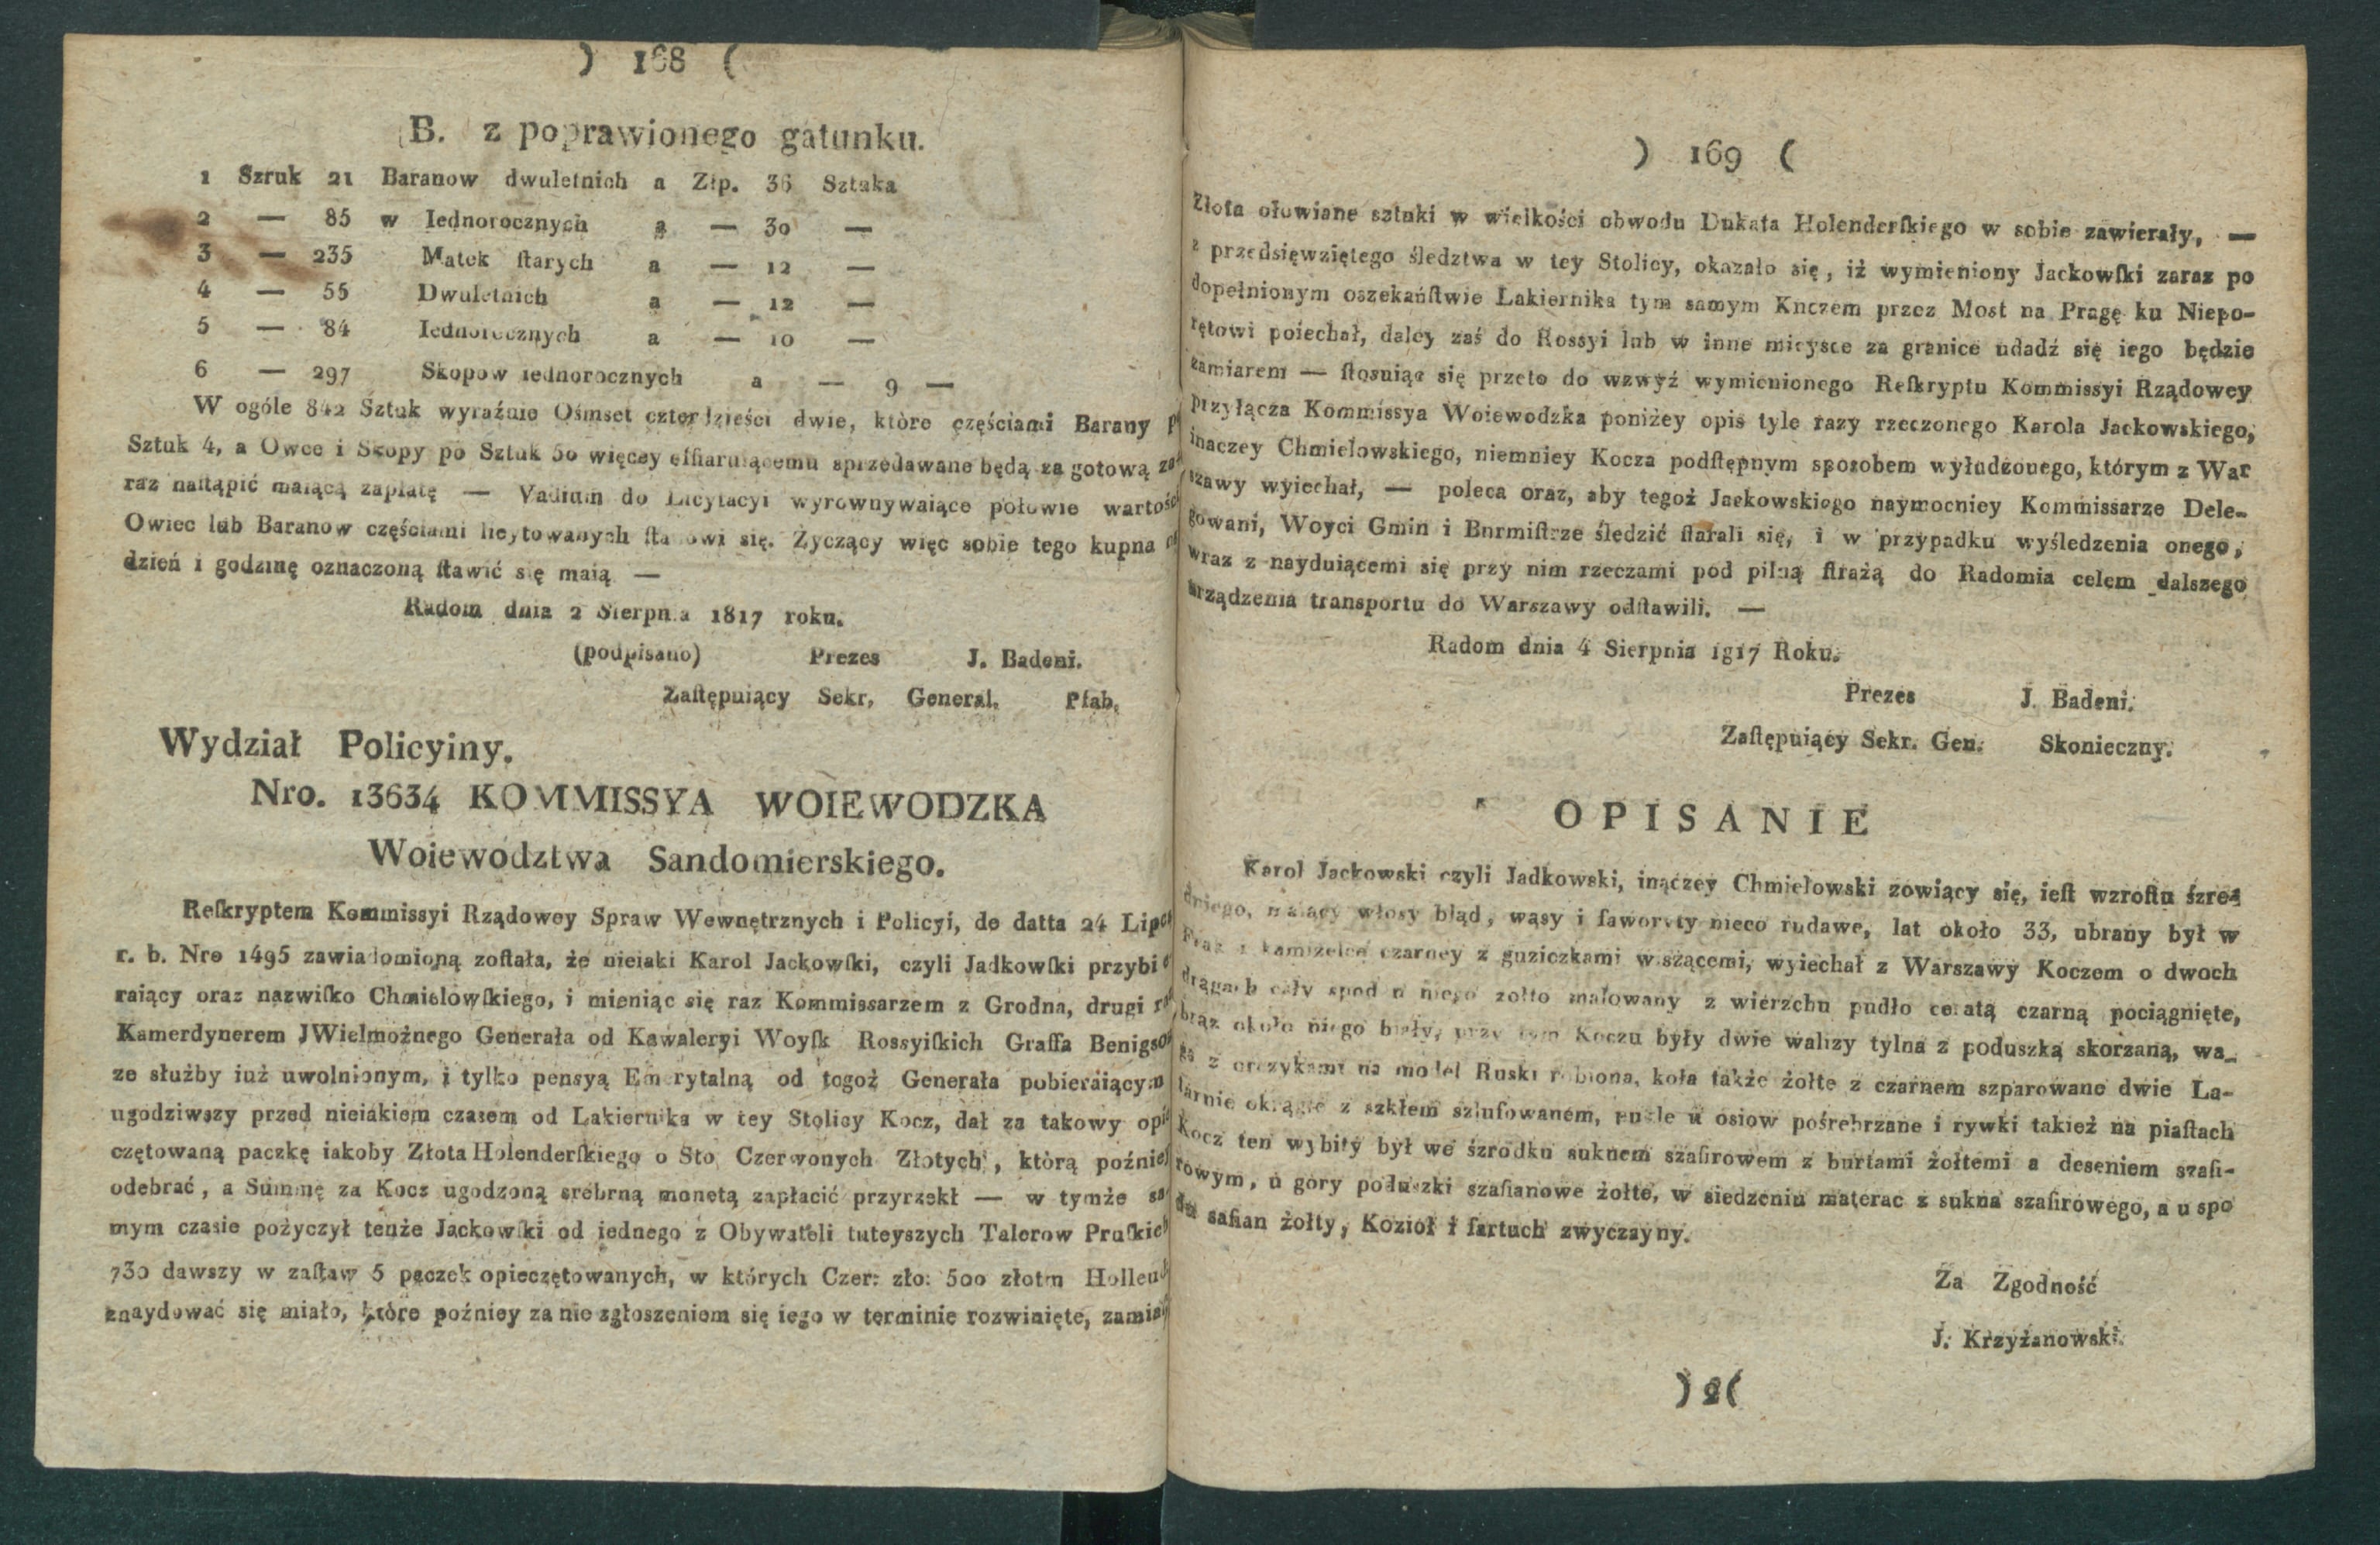 ) 168 (
B. z poprawionego gatunku.
1 Szruk 21 Baranow dwuletnich a Złp. 36 Sztuka
2 — 85 w Iednorocznych a — 30 —
3 — 235 Matek ſtarych a — 12 —
4 — 55 Dwuletnich a — 12 —
5 — 84 Iednorocznych a — 10 —
6 — 297 Skopow iednorocznych a — 9 —
W ogóle 842 Sztuk wyraźnie Ośmset czterdzieści dwie, które częściami Barany p
Sztuk 4, a Owce i Skopy po Sztuk 50 więcey offiaruiącemu sprzedawane będą za gotową za
raz naſtąpić maiącą zapłatę — Vadium do Licytacyi wyrownywaiące połowie wartośc
Owiec lub Baranow częściami licytowanych ſtanowi się. Zyczący więc sobie tego kupna
dzień i godzinę oznaczoną ſtawić się maią —
Radom dnia 2 Sierpnia 1817 roku.
(podpisano) Prezes J. Badeni.
Zaſtępuiący Sekr, General. Pfab.
Wydział Policyiny.
Nro. 13634 KOMMISSYA WOIEWODZKA
Woiewodztwa Sandomierskiego.
Reſkryptem Kommissyi Rządowey Spraw Wewnętrznych i Policyi, de datta 24 Lipca
r. b. Nro 1495 zawiadomioną zoſtała, że nieiaki Karol Jackowſki, czyli Jadkowſki przybie
raiący oraz nazwiſko Chmielowſkiego, i mieniąc się raz Kommissarzem z Grodna, drugi raz
Kamerdynerem JWielmożnego Generała od Kawaleryi Woyſk Rossyiſkich Graffa Benigson
ze służby iuż uwolnionym, i tylko pensyą Emerytalną od tegoż Generała pobieraiącym
ugodziwszy przed nieiakiem czasem od Lakiernika w tey Stolicy Kocz, dał za takowy opie
czętowaną paczkę iakoby Złota Holenderſkiego o Sto Czerwonych Złotych, którą poźniey
odebrać, a Summę za Kocz ugodzoną srebrną monetą zapłacić przyrzekł — w tymże sa
mym czasie pożyczył tenże Jackowſki od iednego z Obywateli tuteyszych Talerow Pruſkich
730 dawszy w zaſtaw 5 paczek opieczętowanych, w których Czer: zło: 500 złotm Hollend
znaydować się miało, które poźniey za nie zgłoszeniem się iego w terminie rozwinięte, zamiaſt
) 169 (
Złota ołowiane sztuki w wielkości obwodu Dukata Holenderſkiego w sobie zawierały, —
z przedsięwziętego śledztwa w tey Stolicy, okazało się, iż wymieniony Jackowſki zaraz po
dopełnionym oszekańſtwie Lakiernika tym samym Knczem przez Most na Pragę ku Niepo-
rętowi poiechał, daley zaś do Rossyi lub w inne mieysce za granice udadź się iego będzie
zamiarem — ſtosuiąc się przeto do wzwyż wymienionego Reſkryptu Kommissyi Rządowey
przyłącza Kommissya Woiewodzka poniżey opis tyle razy rzeczonego Karola Jackowskiego,
inaczey Chmielowskiego, niemniey Kocza podſtępnym sposobem wyłudzonego, którym z War
szawy wyiechał, — poleca oraz, aby tegoż Jackowskiego naymocniey Kommissarze Dele-
gowani, Woyci Gmin i Bnrmiſtrze śledzić ſtarali się, i w przypadku wyśledzenia onego,
wraz z nayduiącemi się przy nim rzeczami pod pilną ſtrażą do Radomia celem dalszego
urządzenia transportu do Warszawy odſtawili. —
Radom dnia 4 Sierpnia 1817 Roku.
Prezes J. Badeni.
Zaſtępuiący Sekr. Gen. Skonieczny.
OPISANIE
Karol Jackowski czyli Jadkowski, inączey Chmielowski zowiący się, ieſt wzroſtu śzre-
dniego, maiący włosy bląd, wąsy i faworyty nieco rudawe, lat około 33, ubrany był w
Frak i kamizelce czarney z guziczkami wiszącemi, wyiechał z Warszawy Koczem o dwoch
drągach cały spod n niego żołto malowany z wierzchu pudło ceratą czarną pociągnięte,
brąz około niego biały, przy tym Koczu były dwie walizy tylna z poduszką skorzaną, wa-
ga z orczykami na model Ruski robiona, koła także żołte z czarnem szparowane dwie La-
tarnie okrągłe z szkłem szlufowanem, puszle u osiow pośrebrzane i rywki takież na piaſtach
Kocz ten wybity był we śzrodku suknem szafirowem z burtami żołtemi a deseniem szafi-
rowym, u gory poduszki szafianowe żołte, w siedzeniu materac z sukna szafirowego, a u spo
du safian żołty, Kozioł i fartuch zwyczayny.
Za Zgodność
J. Krzyżanowski.
) 2 (